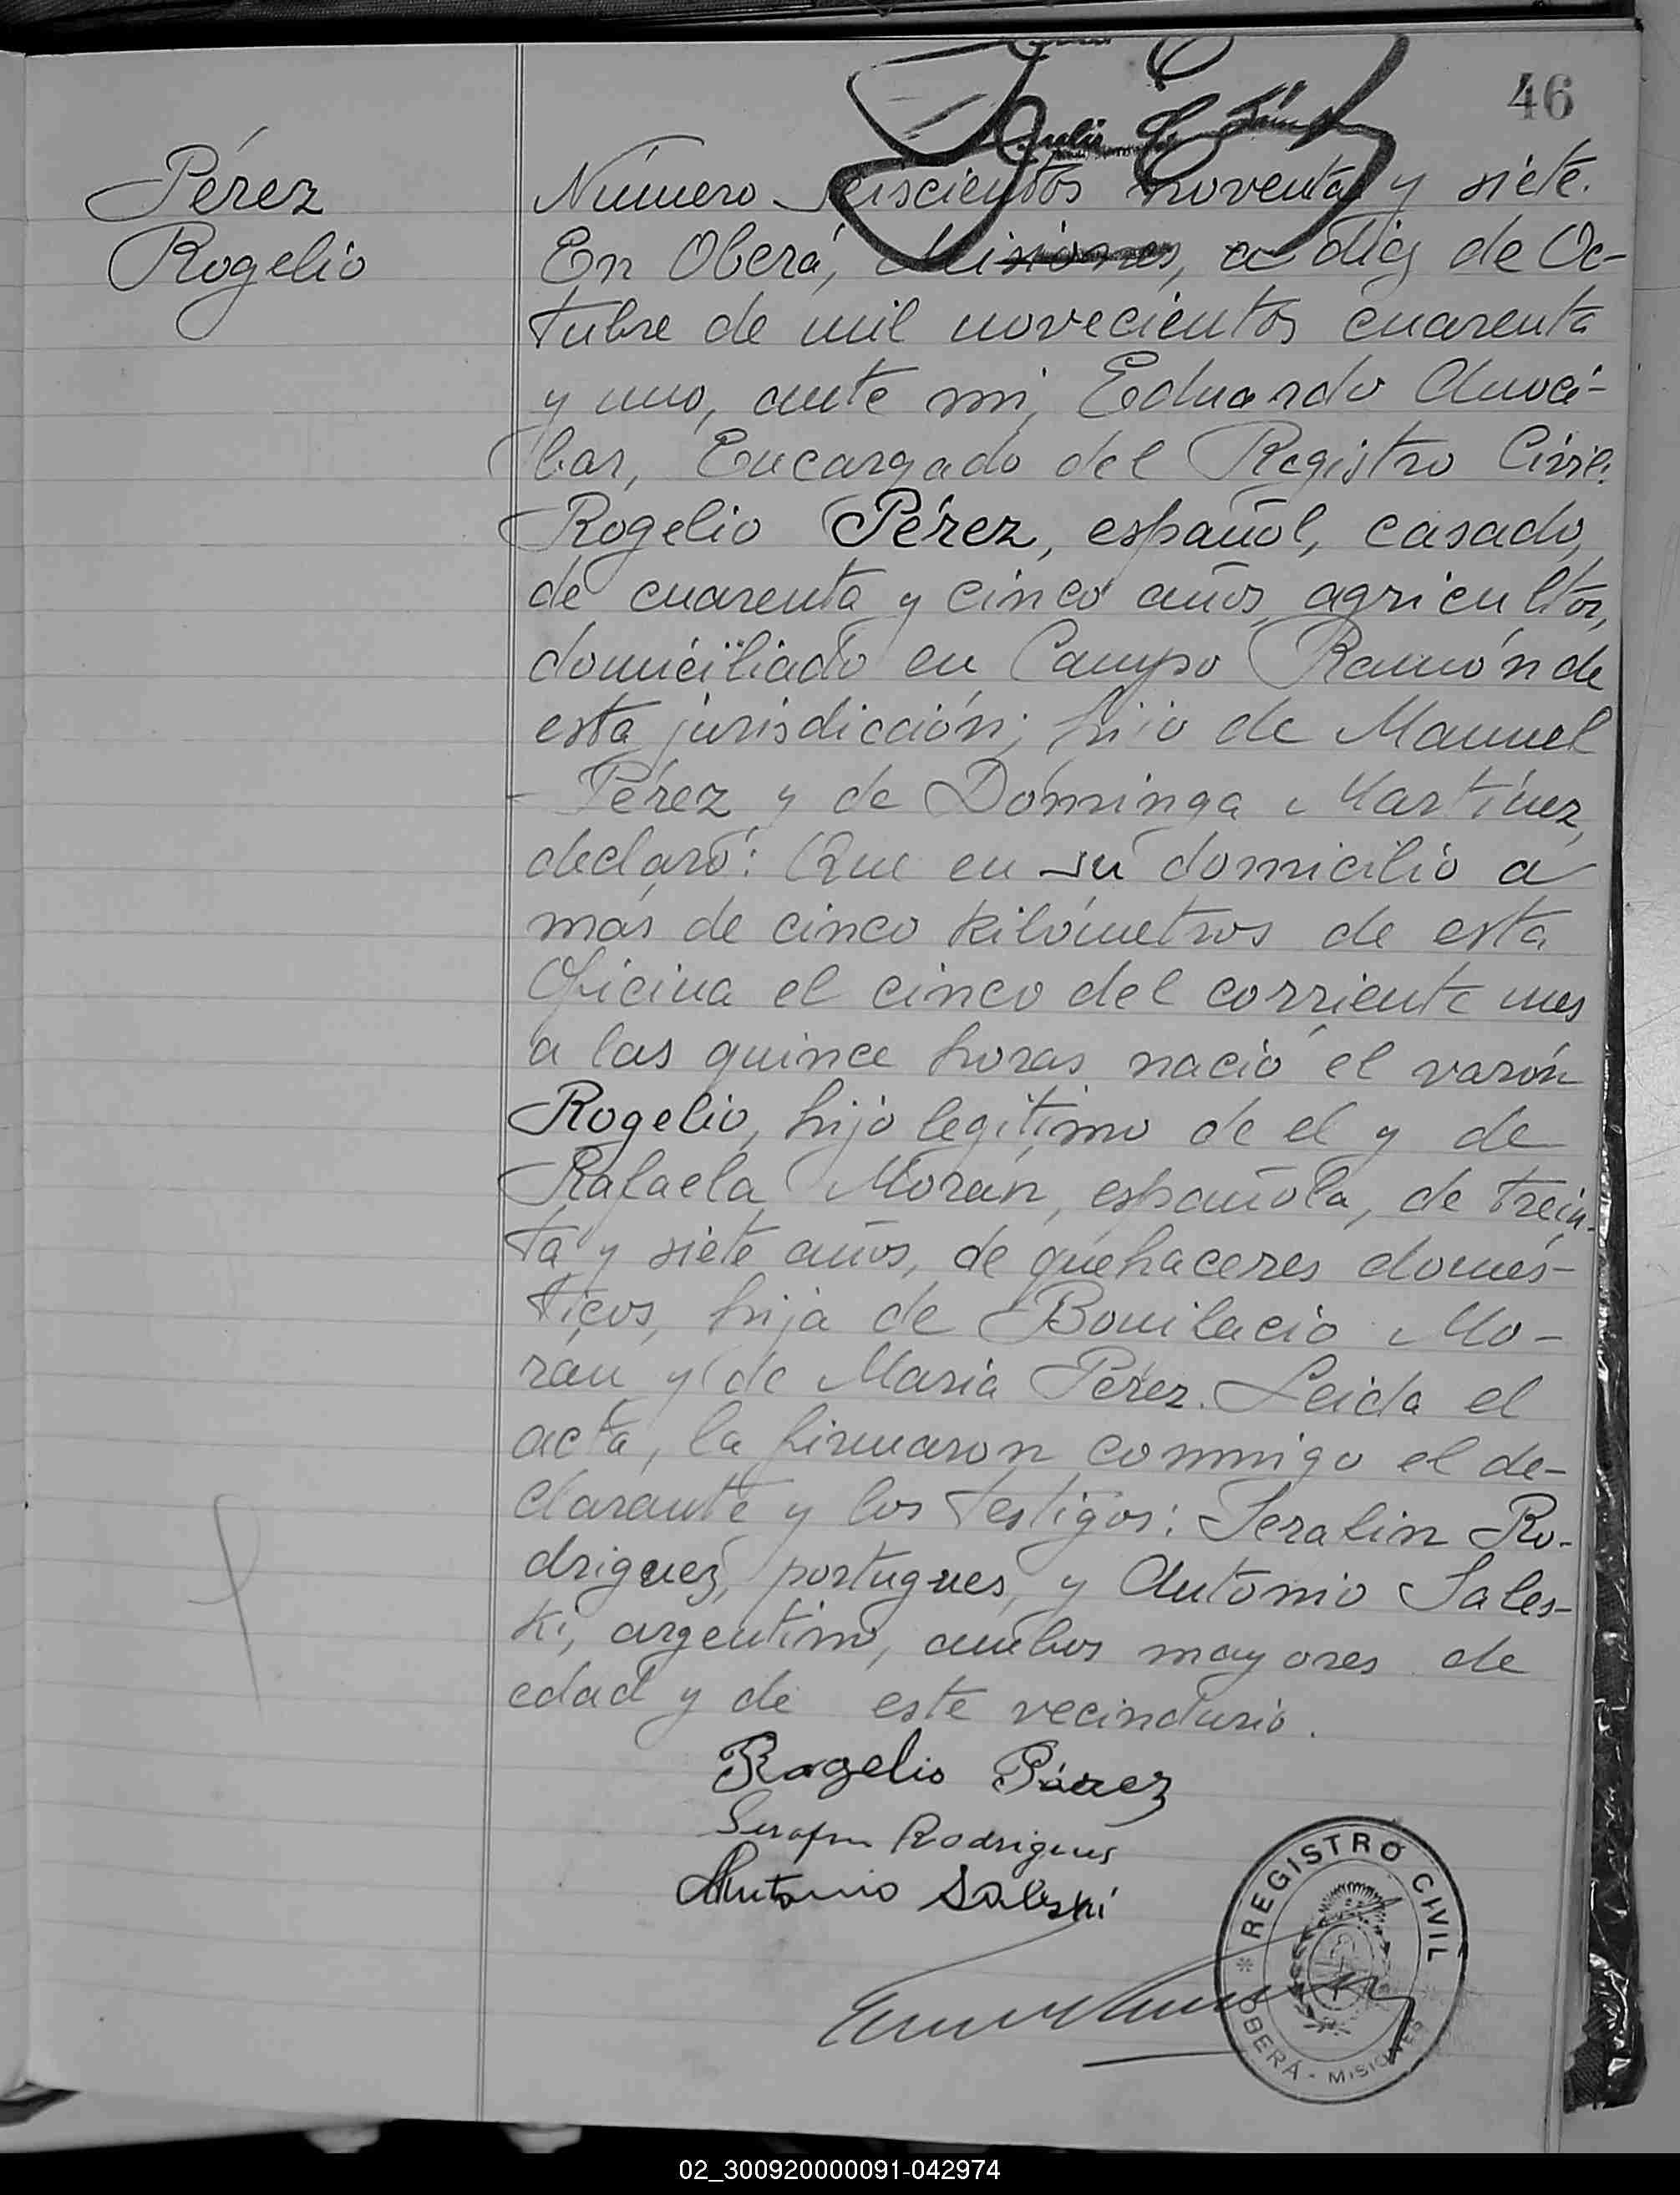 46
Pérez
Rogelio
Número seiscientos noventa y siete.
En Oberá, Misiones, a diez de Oc-
tubre de mil novecientos cuarenta
y uno, ante mi, Eduardo Amoci-
bar, Encargado del Registro Civil.
Rogelio Pérez, español, casado,
de cuarenta y cinco años, agricultor,
domiciliado en Campo Ramón de
esta jurisdicción; hijo de Manuel
Pérez y de Dominga Martínez,
declaró: Que en su domicilio a
más de cinco kilómetros de esta
Oficina el cinco del corriente mes
a las quince horas nació el varón
Rogelio, hijo legítimo de el y de
Rafaela Morán, española, de trein-
ta y siete años, de quehaceres domés-
ticos, hija de Bonifacio Mo-
rán y de María Pérez. Leida el
acta, la firmaron conmigo el de-
clarante y los testigos: Serafin Ro-
driguez, portugues, y Antonio Sales-
ki, argentino, ambos mayores de
edad y de este vecindario.
Rogelio Pérez
Serafin Rodrigues
Antonio Saleski
REGISTRO CIVIL
OBERÁ - MISIONES
02_300920000091-042974